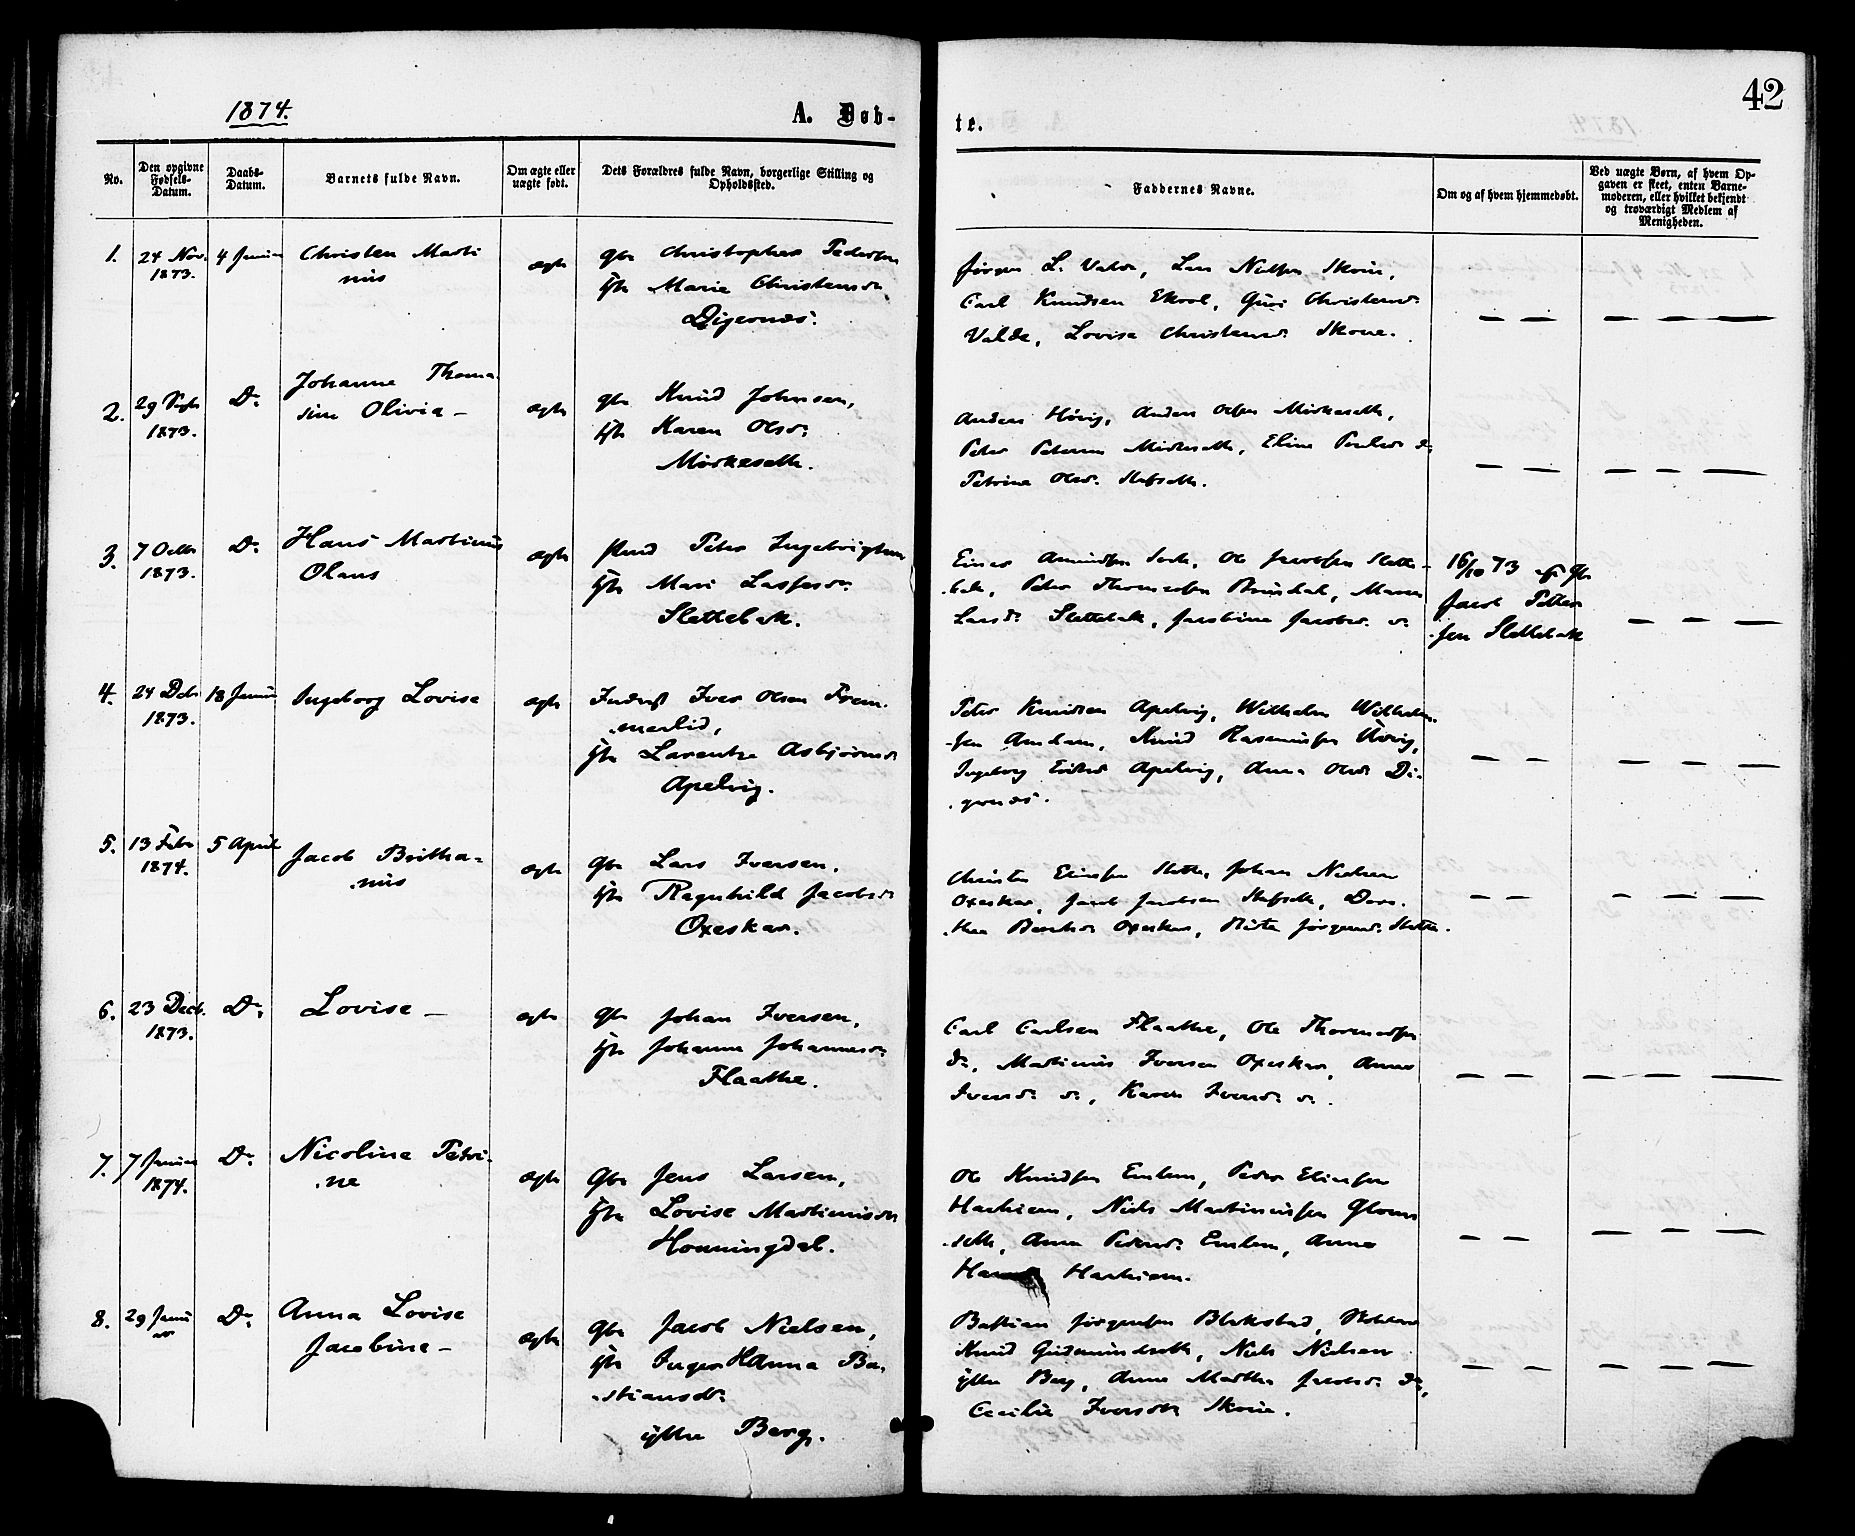 1874.
A. Døb-
te.
42
No.
Den opgivne Fødsels-Datum.
Daabs-Datum.
Barnets fulde Navn.
Om ægte eller uægte født.
Dets Forældres fulde Navn, borgerlige Stilling og Opholdssted.
Faddernes Navne.
Om og af hvem hjemmedøbt.
Ved uægte Børn, af hvem Op-
gaven er skeet, enten Barne-
moderen, eller hvilket bekjendt
og troværdigt Medlem af
Menigheden.
1. 24 Nov. 4 Januar Christen Marti
1873. nus
ægte
Gbr Christopher Pedersen
Marie Christensd.
Digernæs.
Jørgen L. Valde, Lars Nielsen Skoue,
Carl Knudsen Ekrol, Guri Christensd.
Valde, Lovise Christensd. Skoue.
2. 29 Sept. Do Johanne Thoma-
1873. sine Olivia –
ægte
Gbr Knud Johnsen,
Karen Olsd.
Mørkeseth.
Anders Hövig, Anders Olsen Mörkeseth,
Peter Petersen Mörkeseth, Eline Pouls do
Petrine Olsd. Slefseth.
3. 7 Octbr Do Hans Martinus
1873. Olaus
ægte
Peter Ingebrigtsen
Mari Lassesd.
Slettebak.
Einar Amundsen Seth, Ole Jacobsen Slette-
bak, Peter Thomassen Brusdal, Maren
Larsd. Slettebak, Jacobine Jacobsd. do
16/10 73 af Gbr
Jacob Petter-
sen Slettebak
4. 24 Decbr 18 Januar Ingeborg Lovise
1873.
ægte
Inderst Iver Olsen Frem-
merlid,
Larentze Asbjørnsd.
Apelvig.
Peter Knudsen Apelvig, Wilhelm Wilhelm-
sen Amdam, Knud Rasmussen Hövig,
Ingeborg Eriksd Apelvig, Anna Olsd. Di-
gernæs.
5. 13 Febr 5 April Jacob Britha-
1874. nus
ægte
Gbr Lars Iversen,
Ragnhild Jacobsd.
Oxeskar.
Christen Eliassen Slette, Johan Nielsen
Oxeskar, Jacob Jacobsen Slefseth, Doro-
thea Berthsd. Oxeskar, Jörgensd. Slette.
6. 23 Decb. Do Lovise –
1873.
ægte
Gbr Johan Iversen,
Johanne Johannesd.
Flaathe.
Carl Carlsen Flaathe, Ole Thomassen
do, Martinus Iversen Oxeskar, Anne
Iversd. do, Karen Iversd. do.
7. 7 Januar Do Nicoline Petri-
1874. ne
ægte
Gbr Jens Larsen,
Lovise Martinusd.
Honningdal.
Ole Knudsen Emlem, Peder Eliassen
Harhiem, Niels Martinussen Gloms
seth, Anna Pedersd. Emlem, Anne
Harhiem.
8. 29 Janu Do Anna Lovise
ar Jacobine –
ægte
Gbr Jacob Nielsen,
Inger Hanna Ba-
stiansdr.
ytre Berg.
Bastian Jörgensen Blakstad,
Knud Gudmundseth, Niels Nielsen
ytre Berg, Anne Marthe Jacobsd. do,
Cecilie Iversdtr Skoue.